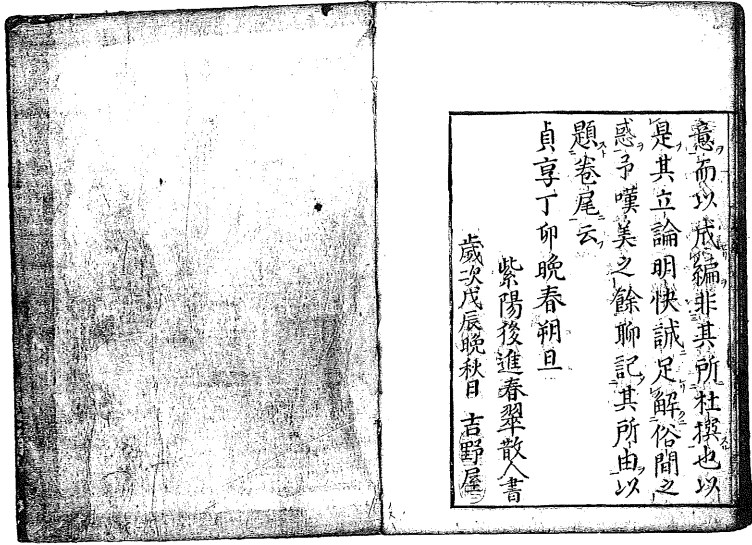 意而以成編非其所杜撰也以
是其立論明快誠足解俗間之
惑予嘆美之餘聊記其所由以
題卷尾云
貞享丁卯晚春朔旦
紫陽後進春翠散人書
歲次戊辰晚秋日 吉野屋